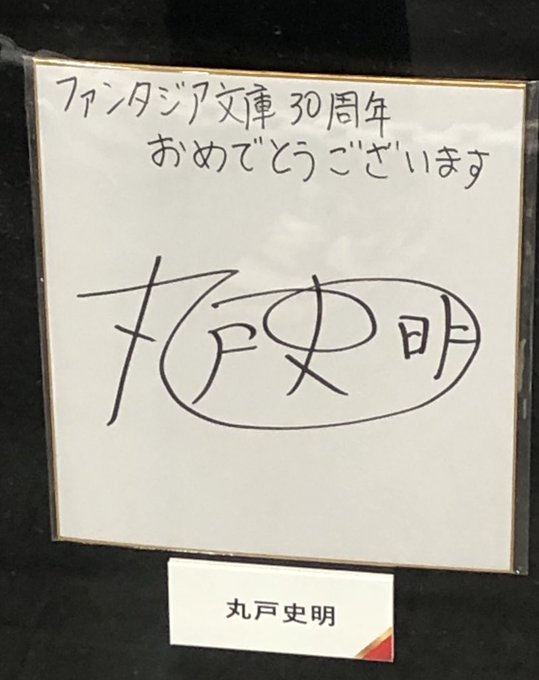 ファンタジア文庫30周年
おめでとうございます
丸戸史明
丸戸史明